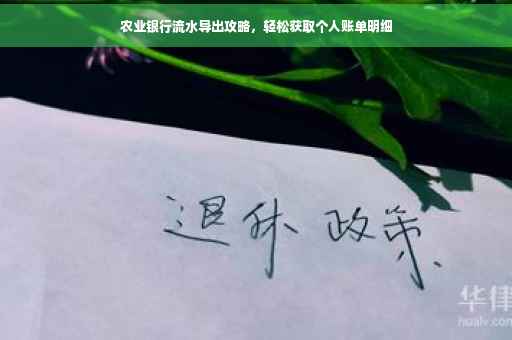 农业银行流水导出攻略，轻松获取个人账单明细
退休 政策
华律
hualv.com